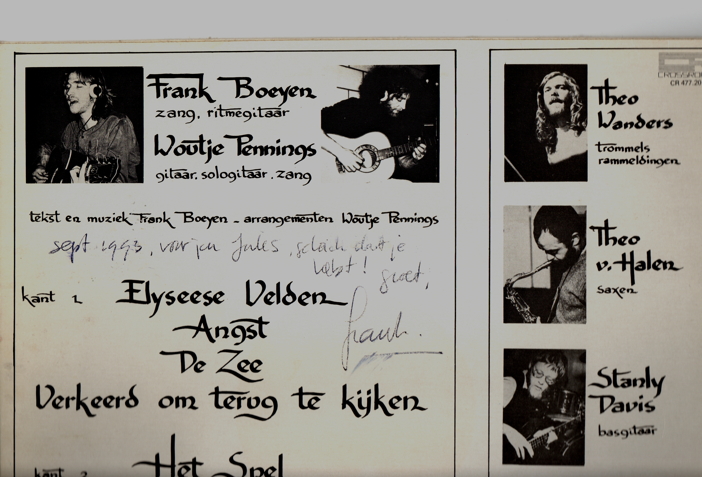 Frank Boeyen
zang, ritmegitaar
Woutje Pennings
gitaar, sologitaar, zang
tekst en muziek Frank Boeyen - arrangementen Woutje Pennings
sept 1993, voor jan Jules,
hebt! groet,
Frank.
kant 1
Elyseese Velden
Angst
De Zee
Verkeerd om terug te kijken
kant 2
Het Spel
CR 477.20
Theo
Wanders
trommels
rammeldingen
Theo
v. Halen
saxen
Stanly
Davis
basgitaar